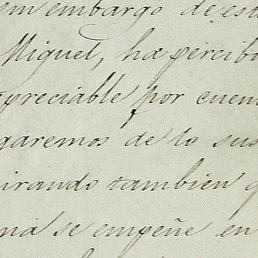 embargo de est
Miguel, ha percibi
preciable por cuen
garemos de lo sus
irando tambien q
na se empeñe en